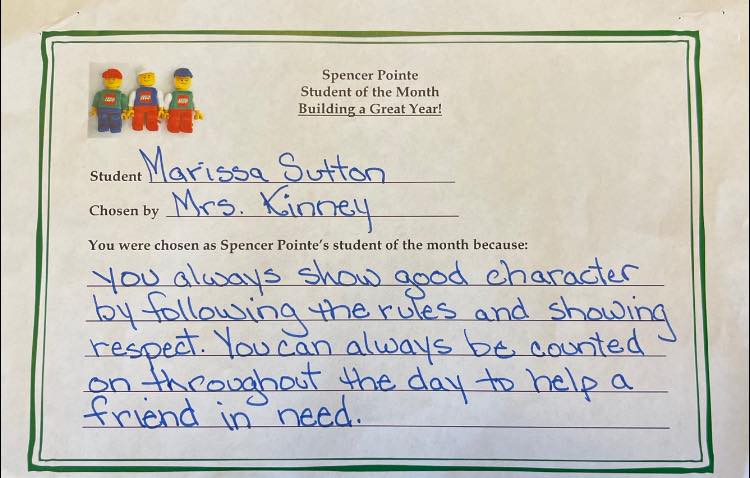 Spencer Pointe
Student of the Month
Building a Great Year!
LEGO LEGO LEGO
Student Marissa Sutton
Chosen by Mrs. Kinney
You were chosen as Spencer Pointe's student of the month because:
you always show good character
by following the rules and showing
respect. You can always be counted
on throughout the day to help a
friend in need.